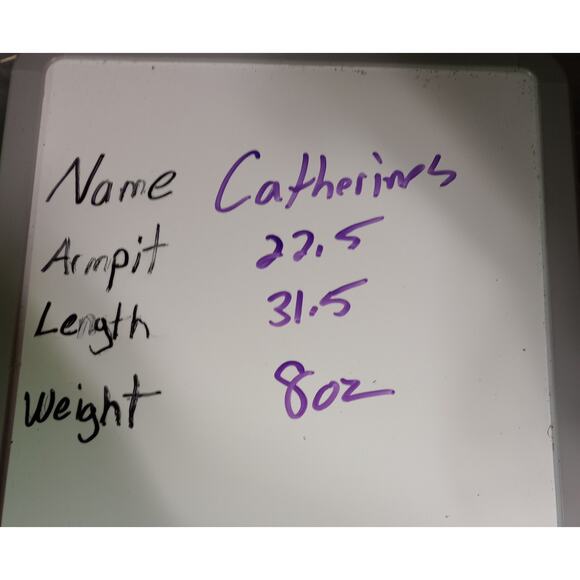 Name Catherines
Armpit 22.5
Length 31.5
Weight 8oz